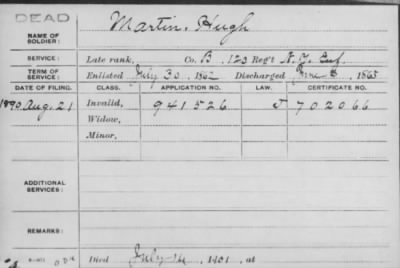 DEAD
Martin, Hugh
NAME OF SOLDIER:
SERVICE: Late rank, Co. B, 123 Reg't N. Y. Inf.
TERM OF SERVICE: Enlisted July 30, 1862 Discharged June 8, 1865
DATE OF FILING. CLASS. APPLICATION NO. LAW. CERTIFICATE NO.
1890 Aug. 21 Invalid, 941526 702066
Widow,
Minor,
ADDITIONAL SERVICES:
REMARKS:
Died July 14, 1901, at